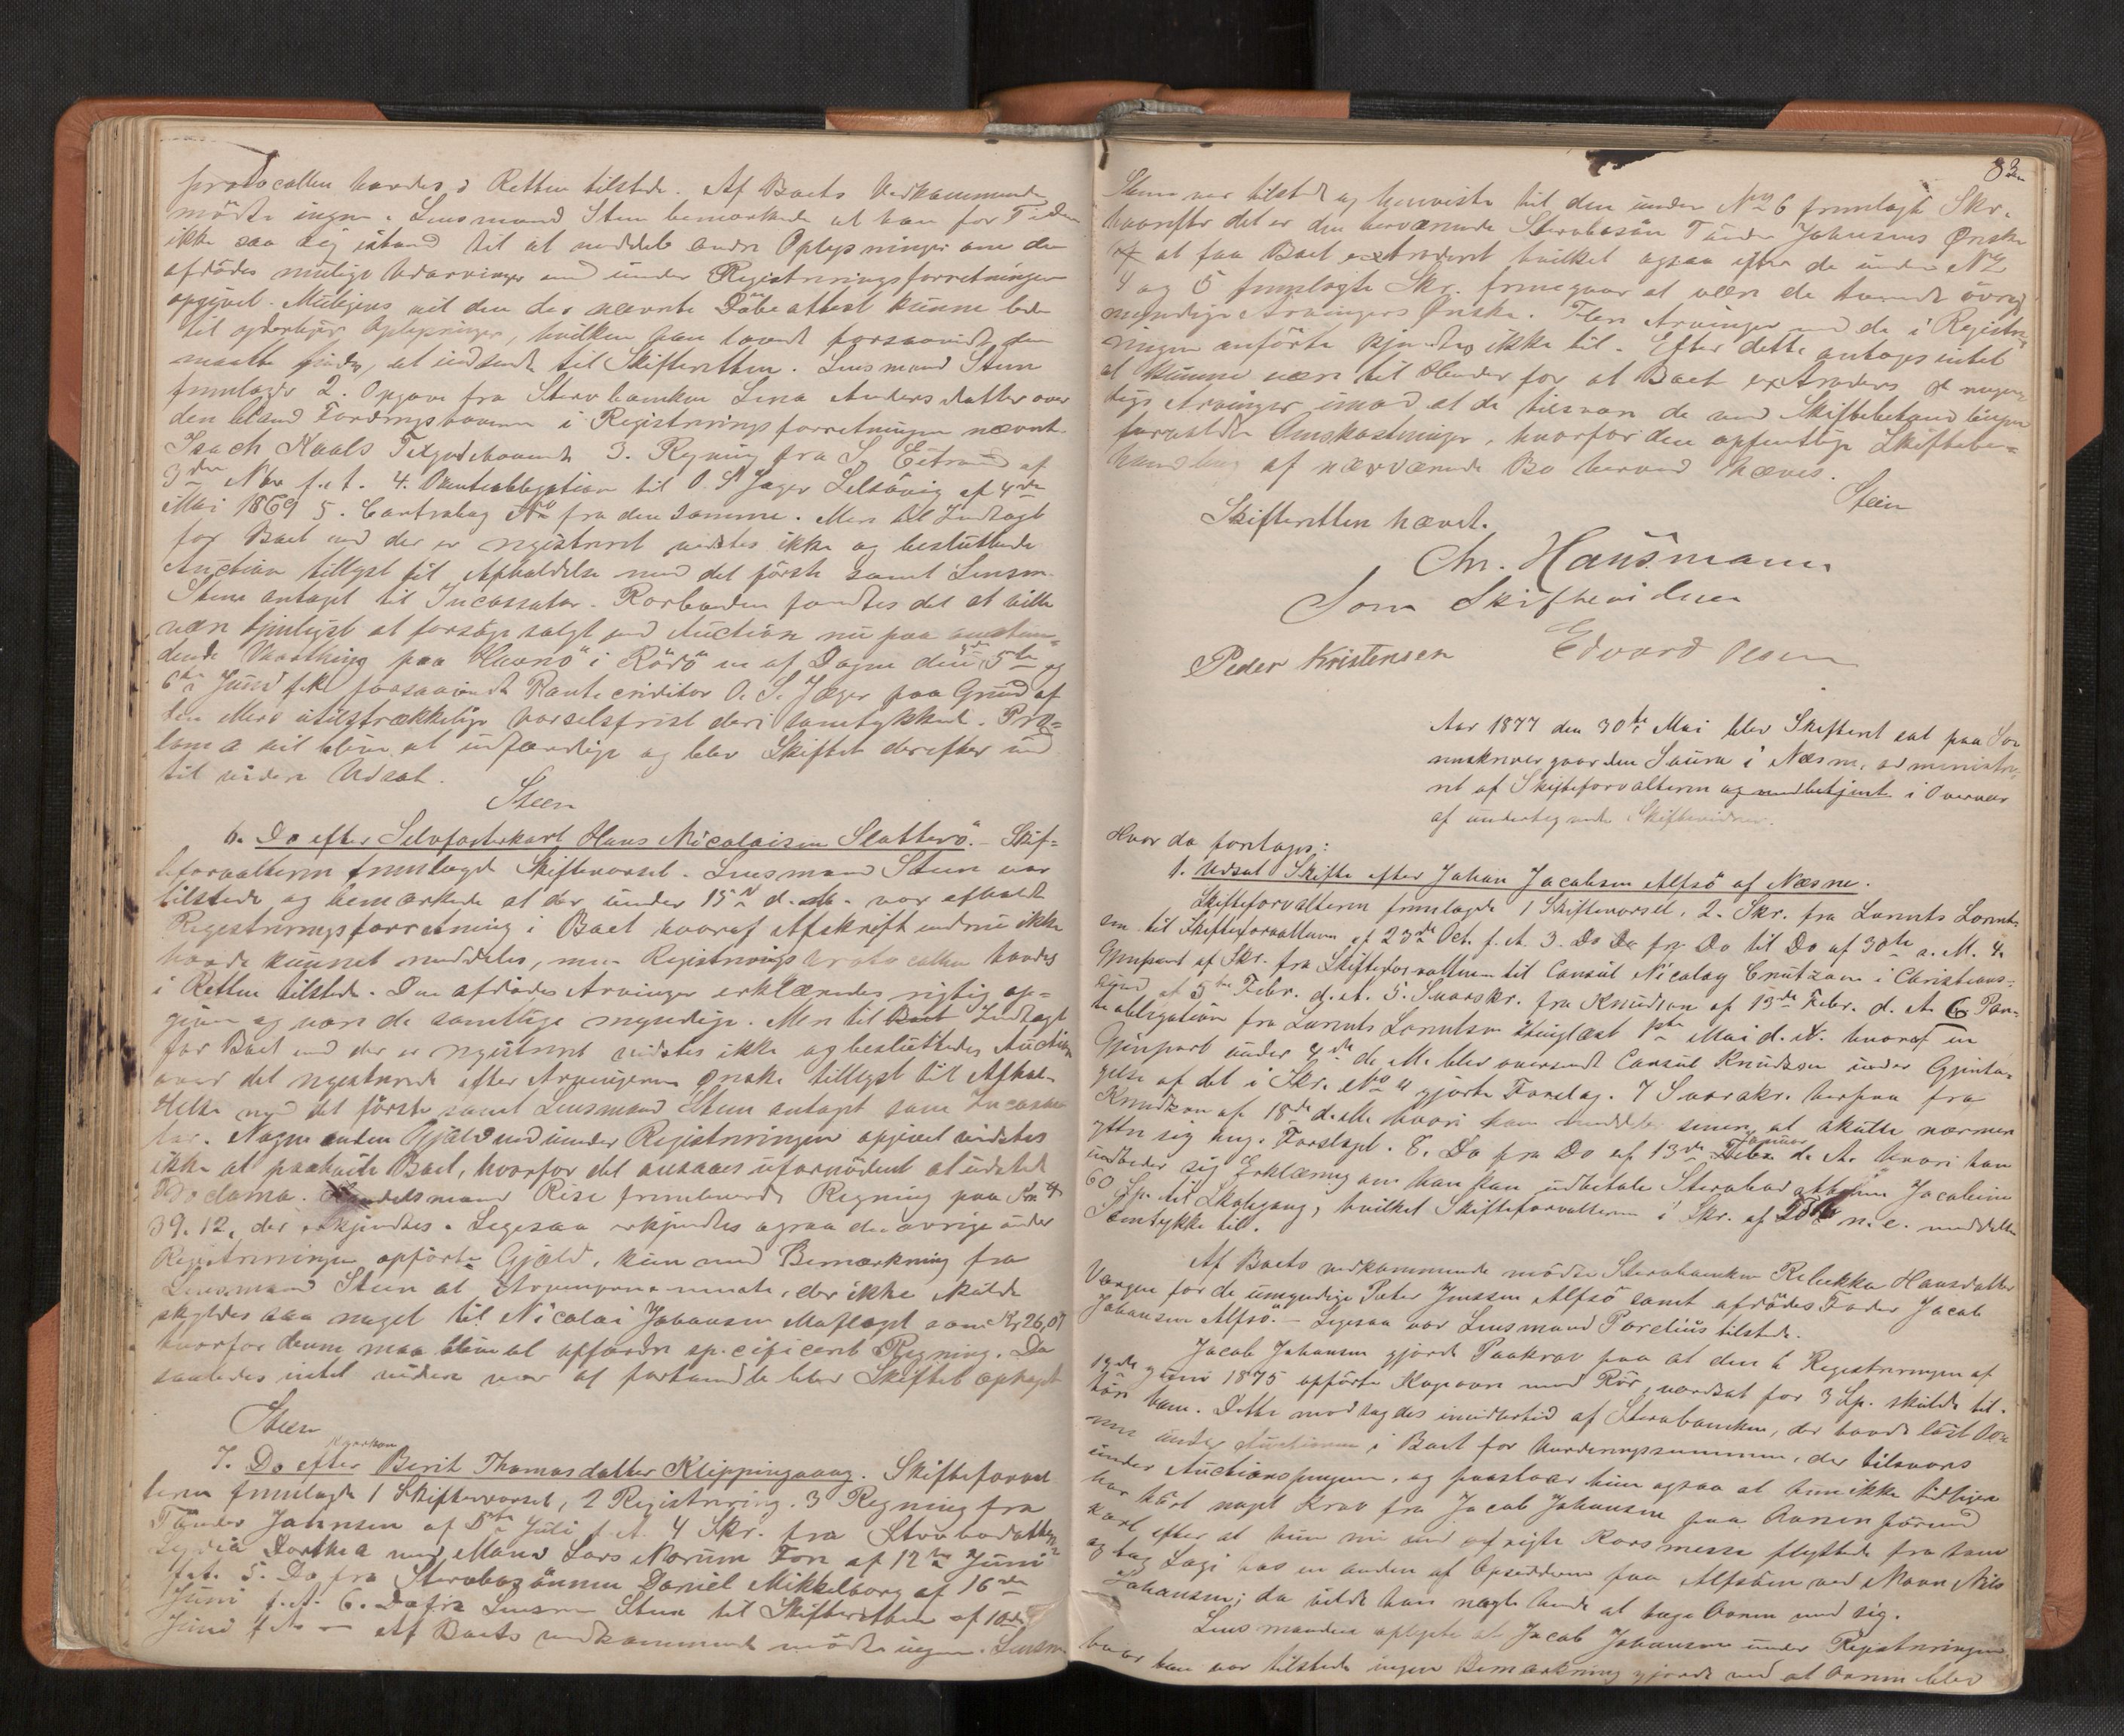 protocollen havdes i Retten tilstede. Af Boets Vedkommende
mödte ingen. Lensmand Steen bemærkede at han for Tiden
ikke saa sig istand til at meddele andre Oplysninger om den
afdödes mulige Udarvinger end under Registreringsforretningen
opgivet. Muligens vil den der nævnte Döbeattest kunne lede
til yderligere Oplysninger, hvilken han lovede forsaavidt den
maatte findes, at indsende til Skifteretten. Lensmand Steen
fremlagde 2. Opgave fra Stervboenken Lina Andersdatter over
den bland Fordringshaverne i Registreringsforretningen nævnte
Isach Naals Tilgodehavende 3. Regning fra S. Eitrand af
3die Nbr f. A. 4. Panteobligation til O. S Jæger Selsövig af 4de
Mai 1869 5. Contrabog No fra den samme. Mere til Indtægt
for Boet end der er registreret vidstes ikke og besluttedes
Auction tillyst til Afholdelse med det förste samt Lensm.
Steen antaget til Incassator. Rorboden fandtes det at ville
være tjenligst at forsöge solgt ved Auction nu paa anstun-
dende Vaarthing paa Havnö i Rödö en af Dagene den 5te og
6te Juni f.k. forsaavidt Pantecreditor O. S. Jæger paa Grund af
den Mere utilstrækkelige Varselsfrist deri samtykkede. Pro-
clama vil blive at udfærdige og blev Skiftet derefter ud
til videre Udsat.
Steen
6. Do efter Selvfosterkarl Hans Nicolaisen Slotterö. - Skif-
teforvalteren fremlagde Skiftevarsel. Lensmand Steen var
tilstede og bemærkede at der under 15de d. M. var afholdt
Registreringsforretning i Boet hvoraf Afskrift endnu ikke
havde kunnet meddeles, men Registreringsprotocollen havdes
i Retten tilstede. Den afdödes Arvinger erklæredes rigtig op-
given og vare de samtlige myndige. Mere til Indtægt
for Boet end der er registreret vidstes ikke og besluttedes Auction
over det registrerede efter Arvingernes Önske tillyst til Afhol-
delse med det förste samt Lensmand Steen antaget som Incassa-
tor. Nogen anden Gjæld end under Registreringen opgivet vidstes
ikke at paahvile Boet, hvorfor det ansaaes ufornödent at udstede
Proclama. Handelsmand Rise fremleverede Regning paa Kr
39.12, der erkjendtes. Ligesaa erkjendtes ogsaa den övrige under
Registreringen opförte Gjæld, kun med Bemærkning fra
Lensmand Steen at Arvingerne mente, der ikke skulde
skyldes saa meget til Nicolai Johansen som Kr 26,07
hvorfor denne maa blive at opfordre sp.cificeret Regning. Da
saaledes intet videre var at forhandle blev Skiftet ophævet
Steen
7. Do efter Berit Thomasdatter Klippingvaag. Skifteforval
teren fremlagde 1 Skiftevarsel, 2 Registrering. 3 Regning fra
Tönder Johnsen af 5te Juli f. A. 4 Skr. fra Stervbodatteren
Lydia Dorthea med Mand Lars Morum Fore af 12te Juni
f. A. 5. Do fra Stervbosönnen Daniel Mikkelborg af 16de
Juni f. A. 6. Do fra Lensm Steen til Skifteretten af 10de
Juni f. A. - Af Boets vedkommende mödte ingen. Lensm
83
Steen var tilstede og henviste til den under No 6 fremlagte Skr.
hvorefter det er den herværende Stervbosön Tönder Johnsens Önske
at faa Boet extraderet hvilket ogsaa efter de under No
4 og 5 fremlagte Skr. fremgaar at være de tvende övrige
myndige Arvingers Önske. Flere Arvinger end de i Registre-
ringen anförte kjendtes ikke til. Efter dette antages intet
at kunne være til Hinder for at Boet extraderes de myn-
dige Arvinger imod at de tilsvare de ved Skiftebehandlingen
forvoldte Omkostninger, hvorfor den offentlige Skiftebe-
handling af nærværende Bo herved hæves.
Steen
Skifteretten hævet.
Chr. Hausmann
Som Skiftevidner
Peder Kristensen Edvard Olsen
Aar 1877 den 30te Mai blev Skifteret sat paa So-
renskrivergaarden Saura i Næsne, administre-
ret af Skifteforvalteren og medbetjent i Overvær
af undertegnede Skiftevidner.
Hvor da foretoges:
1. Udsat Skifte efter Johan Jacobsen Alfsö af Næsne.
Skifteforvalteren fremlagde 1 Skiftevarsel, 2. Skr. fra Lorents Lorent-
sen til Skifteforvalteren af 23de Oct. f. A. 3. Do fra Do til Do af 30te s. M. 4.
Gjenpart af Skr. fra Skifteforvalteren til Consul Nicolay Cnutzon i Christians-
sund af 5te Febr. d. A. 5. Svarskr. fra Knudtzon af 13de Febr. d. A. 6 Pan-
teobligation fra Lorents Lorentsen thinglæst 1ste Mai d. A. hvoraf en
Gjenpart under 4de d. M. blev oversendt Consul Knudtzon under Gjenta-
gelse af det i Skr. No 4 gjorte Forslag. 7 Svarskr. herpaa fra
Knudtzon af 18de d. M. hvori han meddeler senere at skulle nærmere
yttre sig ang. Forslaget. 8. Do fra Do af 13de Januar d. A. hvori han
udbeder sig Erklæring om han kan udbetale Stervbodatteren Jacobine
60 Sp. til Skolegang, hvilket Skifteforvalteren i Skr. af n. e. meddelte
Samtykke til.
Af Boets vedkommende mödte Stervboenken Rebekka Hansdatter
Værgen for de umyndige Peter Jenssen Alfsö samt afdödes Fader Jacob
Johansen Alfsö. - Ligesaa var Lensmand Parelius tilstede.
Jacob Johansen gjorde Paakrav paa at den i Registreringen af
19de Juni 1875 opförte Kogeovn med Rör, værdsat for 3 Sp. skulde til-
höre ham. Dette modsagdes imidlertid af Stervboenken, der havde löst Ov-
nen under Auctionen i Boet for Vurderingssummen, der tilsvares
under Auctionspengene, og paastaar hun ogsaa at hun ikke tidligere
har hört noget Krav fra Jacob Johansen paa Ovnen förend
kort efter at hun nu ved afvigte Korsmesse flyttede fra ham
og tog Logi hos en anden af Opsidderne paa Alfsöen ved Navn Nils
Johansen; da vilde han nægte hende at tage Ovnen med sig.
Lensmanden oplyste at Jacob Johansen under Registreringen
hvor han var tilstede ingen Bemærkning gjorde ved at Ovnen blev